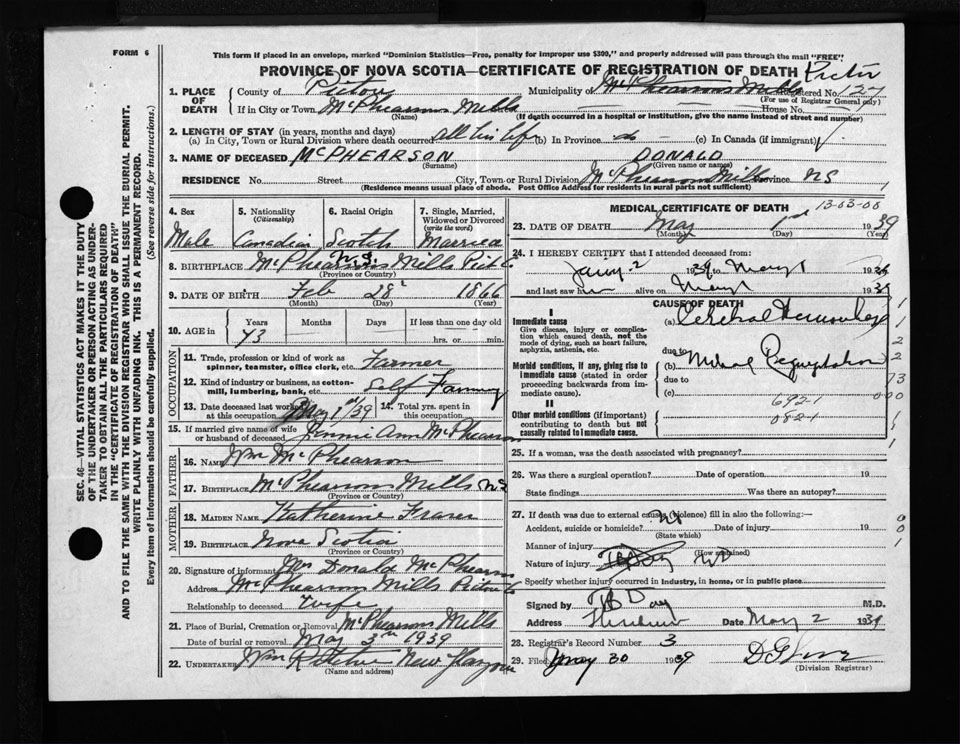 FORM 6
This form if placed in an envelope, marked "Dominion Statistics—Free, penalty for improper use $300," and properly addressed will pass through the mail "FREE"
PROVINCE OF NOVA SCOTIA—CERTIFICATE OF REGISTRATION OF DEATH
Pictou
1. PLACE OF DEATH
County of Pictou
Municipality of McPhearsons Mills
Registered No. 127
(For use of Registrar General only)
If in City or Town McPhearsons Mills
(Name)
House No.
(If death occurred in a hospital or institution, give the name instead of street and number)
2. LENGTH OF STAY (in years, months and days)
(a) In City, Town or Rural Division where death occurred all his life (b) In Province do (c) In Canada (if immigrant)
3. NAME OF DECEASED McPHEARSON DONALD
(Surname) (Given name or names)
RESIDENCE No. Street City, Town or Rural Division McPhearsons Mills Province NS
(Residence means usual place of abode. Post Office Address for residents in rural parts not sufficient)
4. Sex
Male
5. Nationality
(Citizenship)
Canadian
6. Racial Origin
Scotch
7. Single, Married, Widowed or Divorced
(write the word)
Married
8. BIRTHPLACE McPhearsons Mills Pict Co N.S.
(Province or Country)
9. DATE OF BIRTH Feb 28 1866
(Month) (Day) (Year)
10. AGE in
Years Months Days If less than one day old
73 hrs. or min.
OCCUPATION
11. Trade, profession or kind of work as spinner, teamster, office clerk, etc. Farmer
12. Kind of industry or business, as cotton-mill, lumbering, bank, etc. Self Farming
13. Date deceased last worked at this occupation May 1st/39
14. Total yrs. spent in this occupation
15. If married give name of wife or husband of deceased Jennie Ann McPhearson
FATHER
16. NAME Wm McPhearson
17. BIRTHPLACE McPhearsons Mills N.S
(Province or Country)
MOTHER
18. MAIDEN NAME Katherine Fraser
19. BIRTHPLACE Nova Scotia
(Province or Country)
20. Signature of informant Mrs Donald McPhearson
Address McPhearsons Mills Pictou Co
Relationship to deceased Wife
21. Place of Burial, Cremation or Removal McPhearsons Mills
Date of burial or removal May 3rd 1939
22. UNDERTAKER Wm New Glasgow
(Name and address)
MEDICAL CERTIFICATE OF DEATH
23. DATE OF DEATH May 1st 1939
(Month) (Day) (Year)
24. I HEREBY CERTIFY that I attended deceased from:
Jany. 2 1939 to May 1 1939
and last saw him alive on May 1 1939
CAUSE OF DEATH
I
Immediate cause
Give disease, injury or complication which caused death, not the mode of dying, such as heart failure, asphyxia, asthenia, etc.
(a) Cerebral Hemorrhage
due to
Morbid conditions, if any, giving rise to immediate cause (stated in order proceeding backwards from immediate cause)
(b) Mitral Regurgitation
due to
(c)
692-1
082-1
II
Other morbid conditions (if important) contributing to death but not causally related to immediate cause.
25. If a woman, was the death associated with pregnancy?
26. Was there a surgical operation? Date of operation 19
State findings Was there an autopsy?
27. If death was due to external causes (violence) fill in also the following:—
Accident, suicide or homicide? no Date of injury 19
(State which)
Manner of injury
(How sustained)
Nature of injury
Specify whether injury occurred in industry, in home, or in public place
Signed by M.D.
Address Date May 2 1939
28. Registrar's Record Number 3
29. Filed May 30 1939
(Division Registrar)
SEC. 46—VITAL STATISTICS ACT MAKES IT THE DUTY OF THE UNDERTAKER OR PERSON ACTING AS UNDERTAKER TO OBTAIN ALL THE PARTICULARS REQUIRED IN THE "CERTIFICATE OF REGISTRATION OF DEATH" AND TO FILE THE SAME WITH THE DIVISION REGISTRAR WHO SHALL ISSUE THE BURIAL PERMIT.
WRITE PLAINLY WITH UNFADING INK. THIS IS A PERMANENT RECORD.
Every item of information should be carefully supplied. (See reverse side for instructions.)